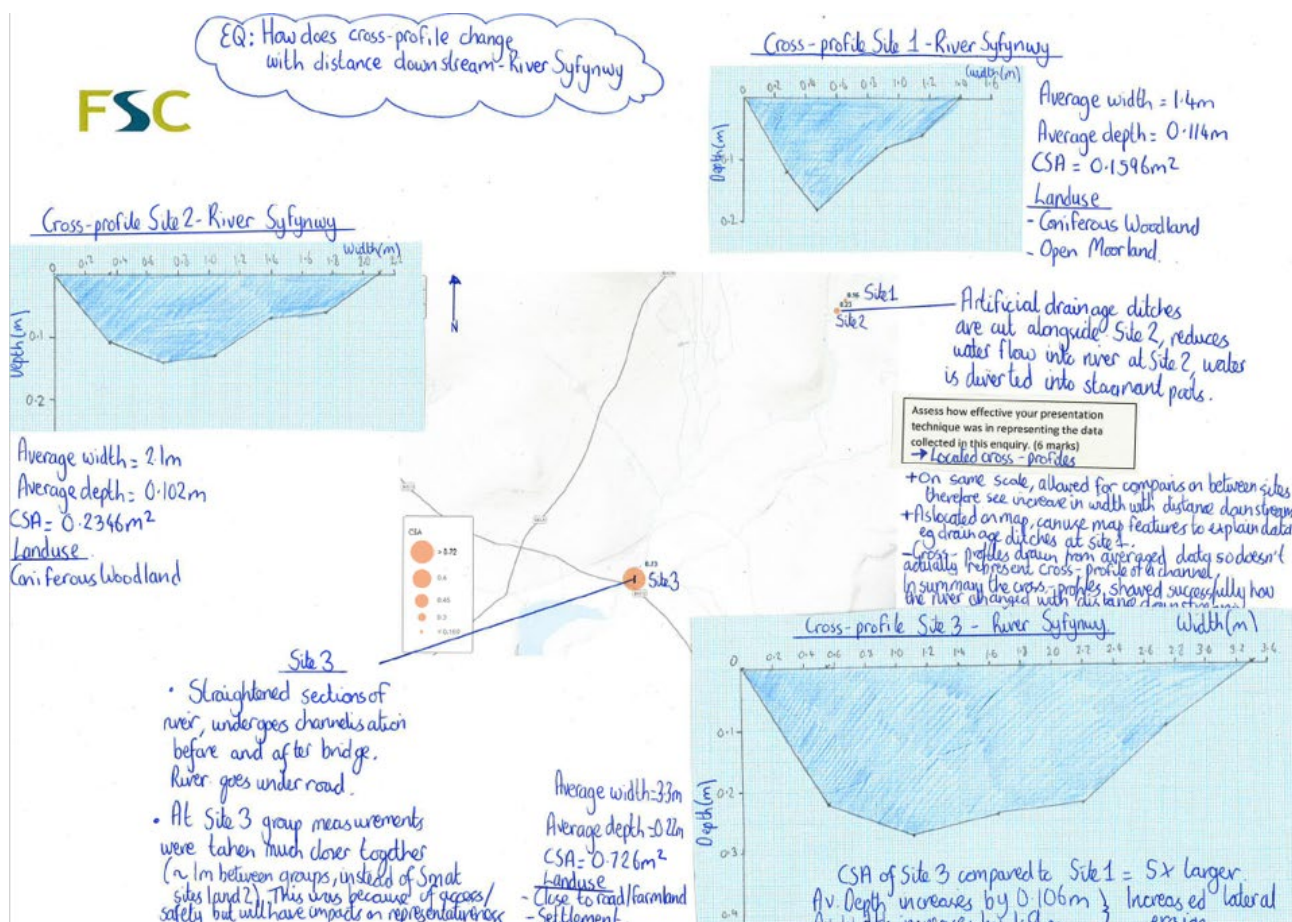 EQ: How does cross-profile change
with distance downstream-River Syfynwy
FSC
Cross-profile Site 1 - River Syfynwy
Width(m)
0 0.2 0.4 0.6 0.8 1.0 1.2 1.4 1.6
Depth(m)
0.1
0.2
Average width = 1.4m
Average depth = 0.114m
CSA = 0.1596m²
Landuse
- Coniferous Woodland
- Open Moorland.
Cross-profile Site 2 - River Syfynwy
Width(m)
0 0.2 0.4 0.6 0.8 1.0 1.4 1.6 1.8 2.0 2.2
Depth(m)
0.1
0.2
Average width = 2.1m
Average depth = 0.102m
CSA = 0.2346m²
Landuse
Coniferous Woodland
N
Site 1
Site 2
Artificial drainage ditches
are cut alongside Site 2, reduces
water flow into river at Site 2, water
is diverted into stagnant pools.
Assess how effective your presentation
technique was in representing the data
collected in this enquiry. (6 marks)
→ Located cross-profiles
+ On same scale, allowed for comparison between sites
therefore see increase in width with distance downstream
+ As located on map, can use map features to explain data
eg drainage ditches at site 1.
- Cross-profiles drawn from averaged data so doesn't
actually represent cross-profile of a channel.
In summary the cross-profiles, showed successfully how
the river changed with distance downstream
CSA
> 0.72
0.6
0.45
0.3
0.73
Site 3
Site 3
• Straightened sections of
river, undergoes channelisation
before and after bridge.
River goes under road.
• At Site 3 group measurements
were taken much closer together
(~ 1m between groups, instead of 5m at
sites 1 and 2). This was because of access/
safety but will have impacts on representativeness
Average width=3.3m
Average depth=0.22m
CSA = 0.726m²
Landuse
- Close to road/farmland
- Settlement
Cross-profile Site 3 - River Syfynwy
Width(m)
0 0.2 0.4 0.6 0.8 1.0 1.2 1.4 1.6 1.8 2.0 2.2 2.4 2.6 2.8 3.2 3.6
Depth(m)
0.1
0.2
0.3
0.4
CSA of Site 3 compared to Site 1 = 5x larger.
Av. Depth increases by 0.106m } Increased lateral